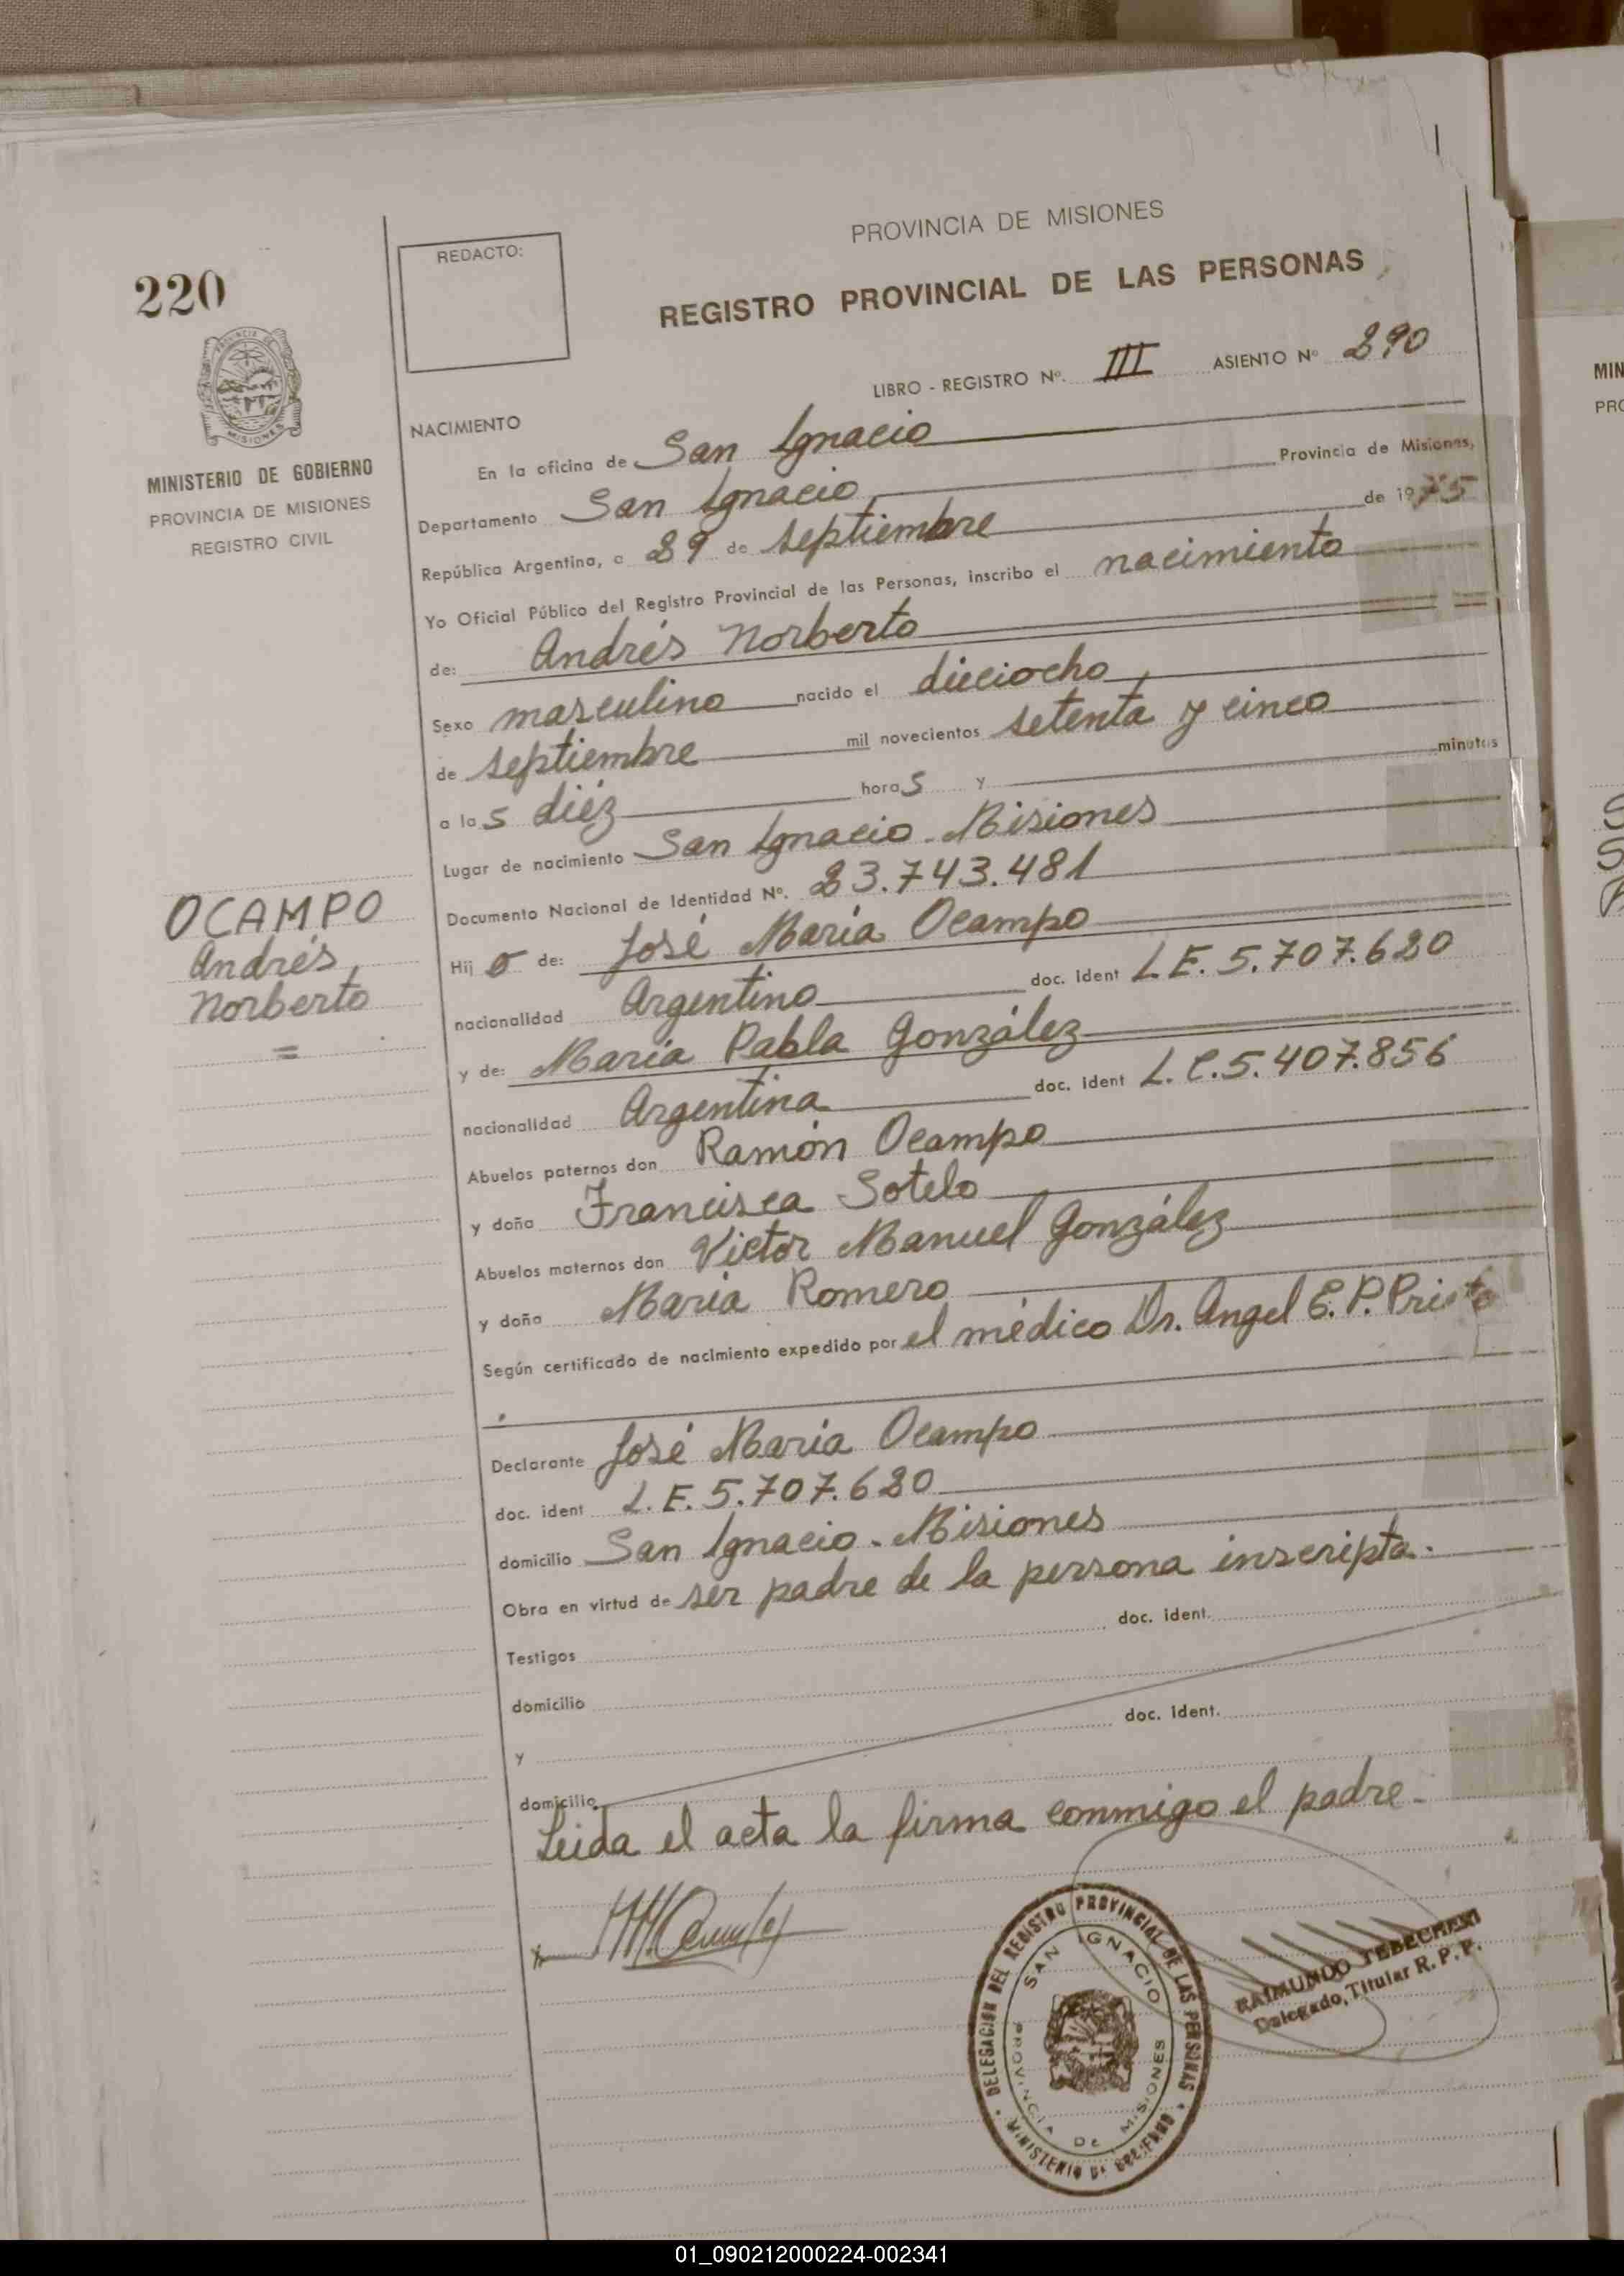 220
MINISTERIO DE GOBIERNO
PROVINCIA DE MISIONES
REGISTRO CIVIL
REDACTO:
PROVINCIA DE MISIONES
REGISTRO PROVINCIAL DE LAS PERSONAS
LIBRO - REGISTRO Nº. III ASIENTO Nº 290
NACIMIENTO
En la oficina de San Ignacio
Departamento San Ignacio Provincia de Misiones,
República Argentina, a 29 de septiembre de 1975
Yo Oficial Público del Registro Provincial de las Personas, inscribo el nacimiento
de: Andrés Norberto
Sexo masculino nacido el dieciocho
de septiembre mil novecientos setenta y cinco
a las diéz horas y minutos
Lugar de nacimiento San Ignacio - Misiones
Documento Nacional de Identidad Nº. 23.743.481
OCAMPO
Andrés
Norberto
=
Hijo de: José María Ocampo
nacionalidad Argentino doc. ident L.E. 5.707.620
y de: María Pabla González
nacionalidad Argentina doc. ident L.C. 5.407.856
Abuelos paternos don Ramón Ocampo
y doña Francisca Sotelo
Abuelos maternos don Victor Manuel González
y doña María Romero
Según certificado de nacimiento expedido por el médico Dr. Angel E. P.
Declarante José María Ocampo
doc. ident L.E. 5.707.620
domicilio San Ignacio - Misiones
Obra en virtud de ser padre de la persona inscripta.
Testigos doc. ident.
domicilio
y doc. ident.
domicilio
Leida el acta la firma conmigo el padre.-
DELEGACION DEL REGISTRO PROVINCIAL DE LAS PERSONAS
SAN IGNACIO
PROVINCIA DE MISIONES
MINISTERIO DE GOBIERNO
RAIMUNDO
Delegado, Titular R. P. P.
01_090212000224-002341